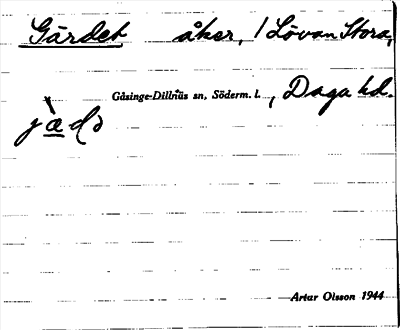 Gärdet åker, / Lövan Stora,
Gåsinge-Dillnäs sn, Söderm. l., Daga hd.
Artur Olsson 1944